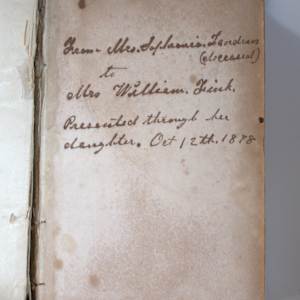 From Mrs. Sophronia. Landrus
(deceased)
to
Mrs William. Fink.
Presented through her
daughter. Oct 12th. 1898